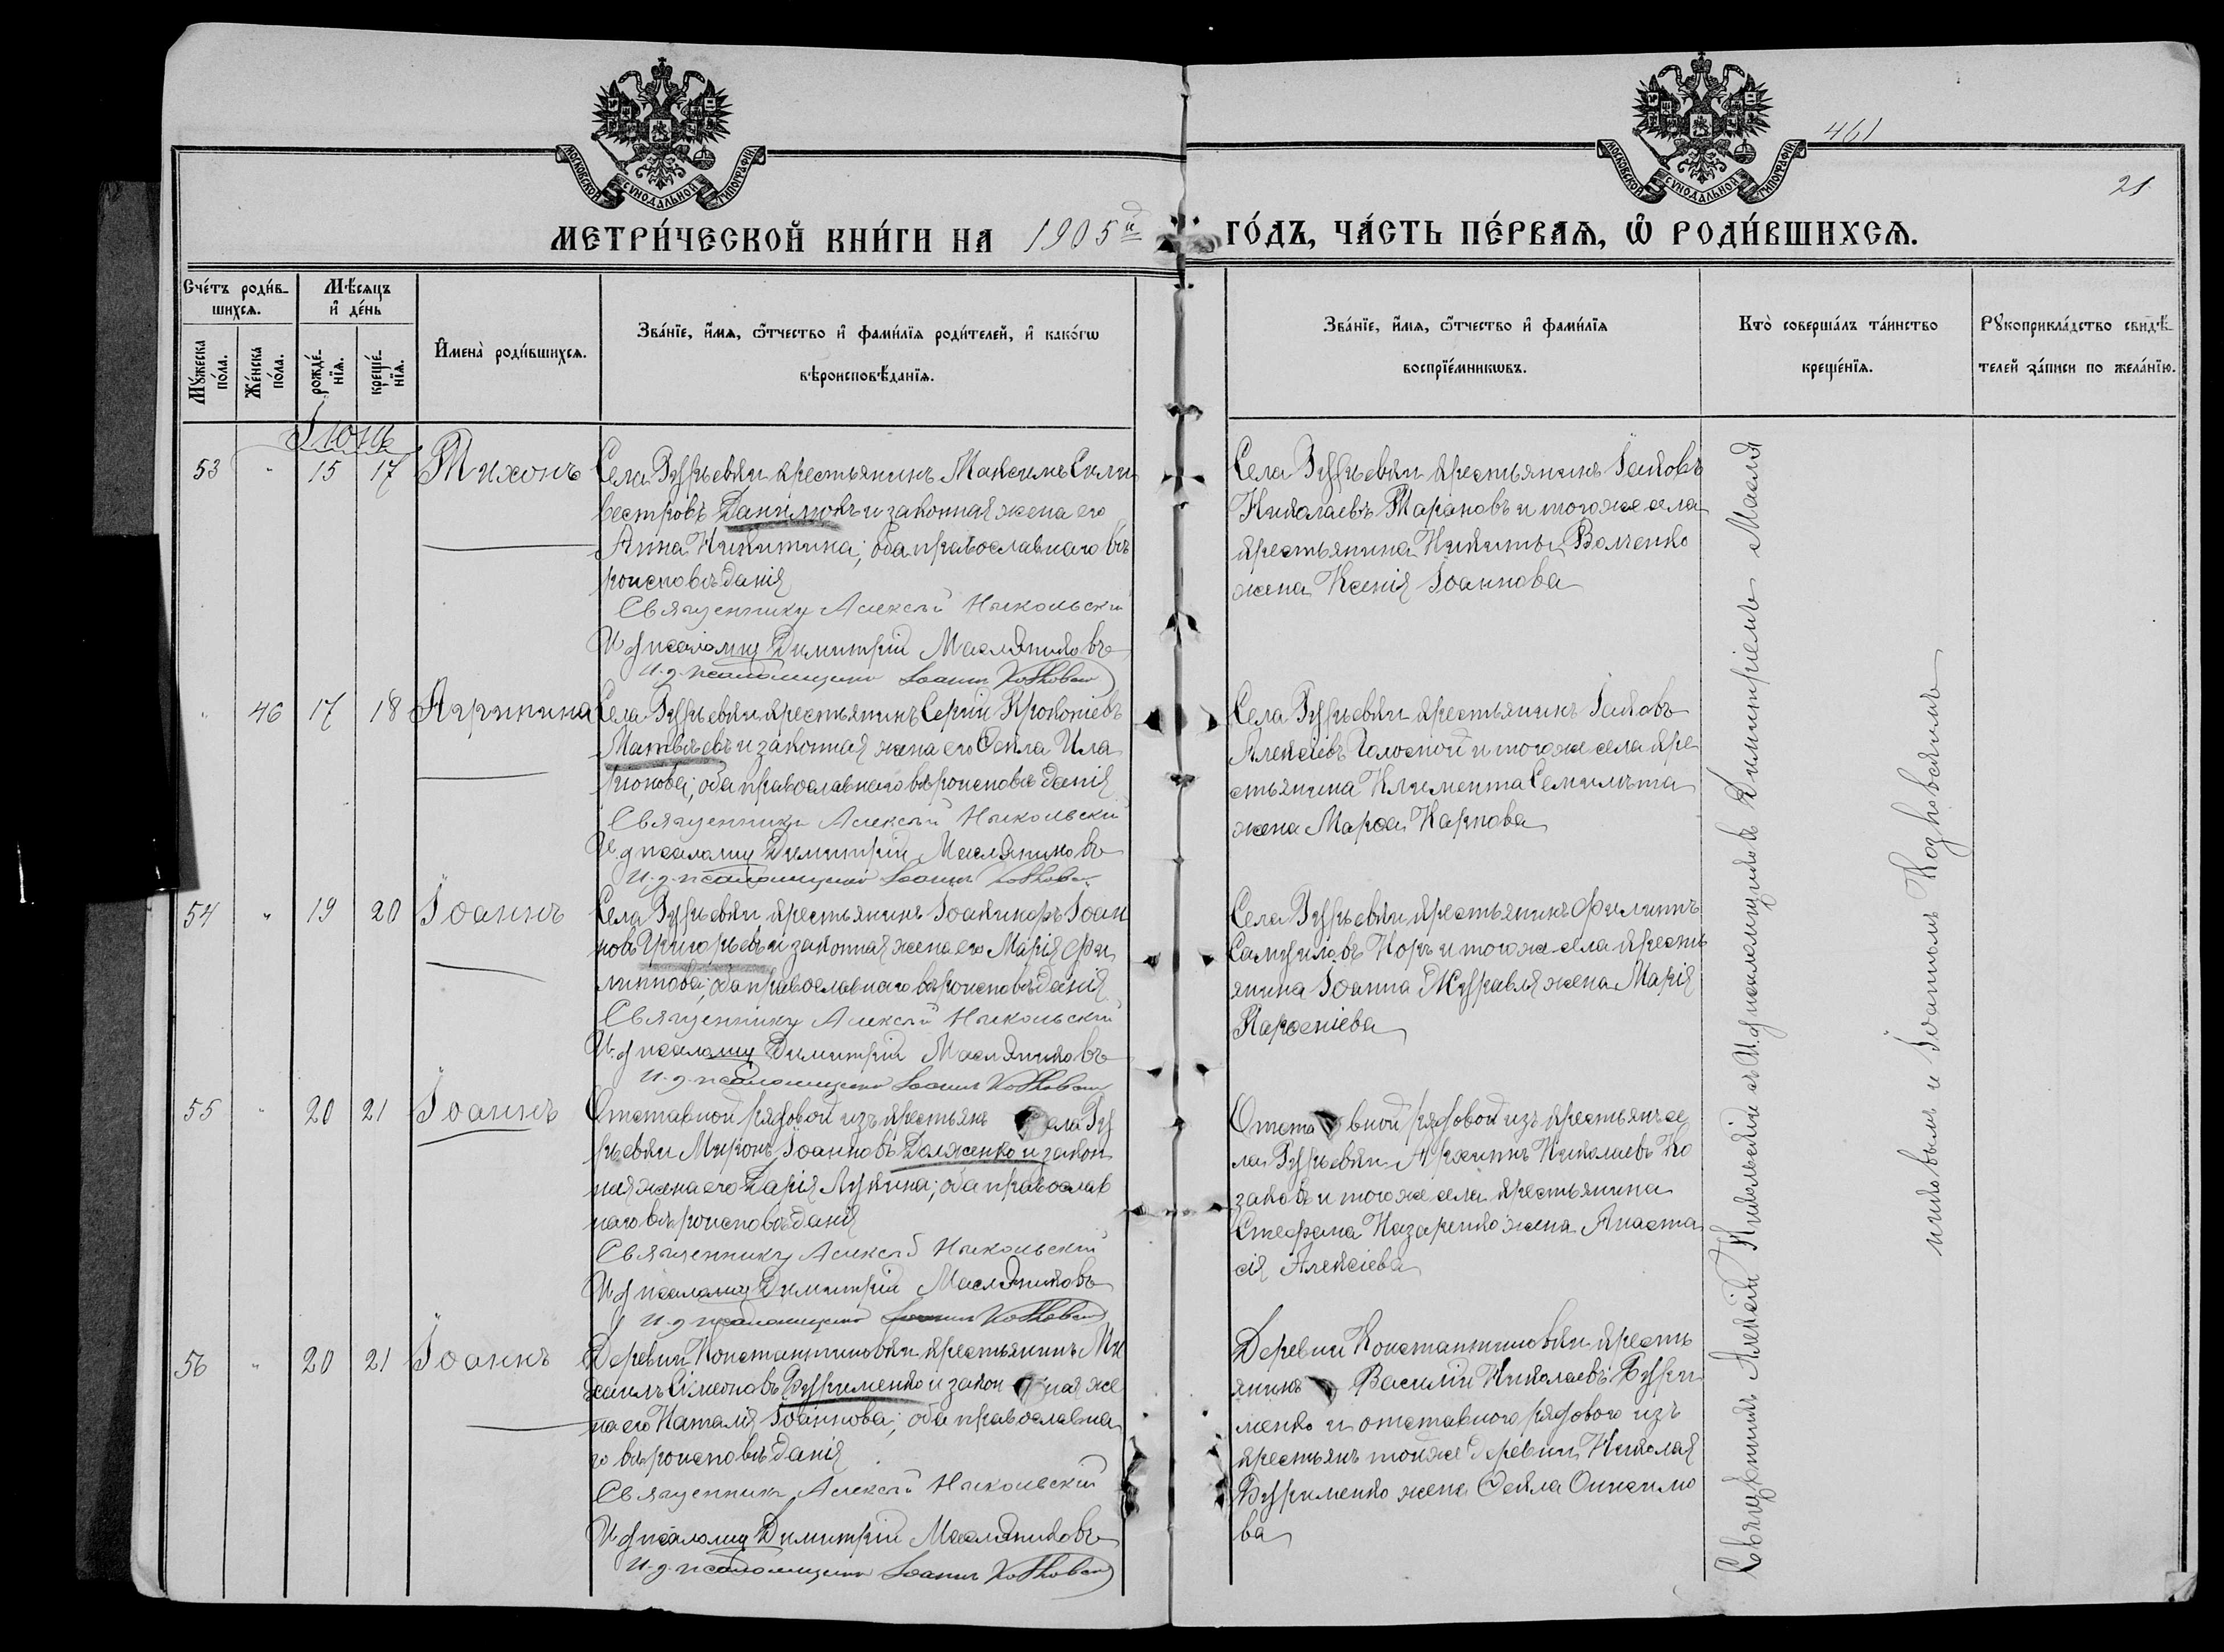 МОСКОВСКОЙ СѴНОДАЛЬНОЙ ТИПОГРАФІИ
МОСКОВСКОЙ СѴНОДАЛЬНОЙ ТИПОГРАФІИ
461
21
МЕТРИ́ЧЕСКОЙ КНИ́ГИ НА 1905й
ГО́ДЪ, ЧА́СТЬ ПЕ́РВАѦ, Ѡ҆ РОДИ́ВШИХСѦ.
Сче́тъ роди́в-
шихсѧ.
Мꙋ́жеска по́ла.
Же́нска по́ла.
Мѣ́сѧцъ
и҆ де́нь
рожде́-нїѧ.
креще́-нїѧ.
И҆мена̀ роди́вшихсѧ.
Зва́нїе, и҆́мѧ, ѻ҆́тчество и҆ фами́лїѧ роди́телей, и҆ како́гѡ
вѣроисповѣ́данїѧ.
Зва́нїе, и҆́мѧ, ѻ҆́тчество и҆ фами́лїѧ
воспрїе́мникѡвъ.
Кто̀ соверша́лъ та́инство
креще́нїѧ.
Рꙋкоприкла́дство свидѣ́-
телей за́писи по жела́нїю.
Іюнь
53 " 15 17 Тихонъ
Села Гурьевки крестьянинъ Максимъ Сили
вестровъ Данилюкъ и законная жена его
Анна Никитина; оба православнаго вѣ
роисповѣданія
Священникъ Алексѣй Никольскій
И д псаломщ Димитрій Масляниковъ
И. д. псаломщика Іоаннъ
Села Гурьевки крестьянинъ Іаковъ
Николаевъ Тарановъ и того же села
крестьянина Никиты Волченко
жена Ксенія Іоаннова
" 46 17 18 Агрипина
Села Гурьевки крестьянинъ Сергій Прокопіевъ
Матвѣевъ и законная жена его Ѳекла Ила
ріонова; оба православнаго вѣроисповѣданія
Священникъ Алексѣй Никольскій
И д псаломщ Димитрій Масляниковъ
И. д. псаломщика Іоаннъ
Села Гурьевки крестьянинъ Іаковъ
Алексіевъ Голосной и того же села кре
стьянина Климента
жена Марѳа Карпова
54 " 19 20 Іоаннъ
Села Гурьевки крестьянинъ Іоаникій Іоан
новъ Григорьевъ и законная жена его Марія Фи
липпова; оба православнаго вѣроисповѣданія
Священникъ Алексѣй Никольскій
И д псаломщ Димитрій Масляниковъ
И. д. псаломщика Іоаннъ
Села Гурьевки крестьянинъ Филиппъ
Самуиловъ и того же села кресть
янина Іоанна Журавля жена Марія
Парѳеніева
55 " 20 21 Іоаннъ
Отставной рядовой изъ крестьянъ села Гу
рьевки Миронъ Іоанновъ Долженко и закон
ная жена его Дарія Лукина; оба православ
наго вѣроисповѣданія
Священникъ Алексѣй Никольскій
И д псаломщ Димитрій Масляниковъ
И. д. псаломщика Іоаннъ
Отставной рядовой изъ крестьянъ се
ла Гурьевки Архиппъ Николаевъ Ко
заковъ и того же села крестьянина
Стефана Назаренко жена Анаста
сія Алексіева
56 " 20 21 Іоаннъ
Деревни Константиновки крестьянинъ Ми
хаилъ Симеоновъ Бурименко и законная же
на его Наталія Іоаннова; оба православна
го вѣроисповѣданія
Священникъ Алексѣй Никольскій
И д псаломщ Димитрій Масляниковъ
И. д. псаломщика Іоаннъ
Деревни Константиновки кресть
янинъ Василій Николаевъ Бури
менко и отставного рядового изъ
крестьянъ той же деревни Николая
Бурименко жена Ѳекла Онисимо
ва
Священникъ Алексій Никольскій съ И д псаломщиковъ Димитріемъ Масля
никовымъ и Іоанномъ